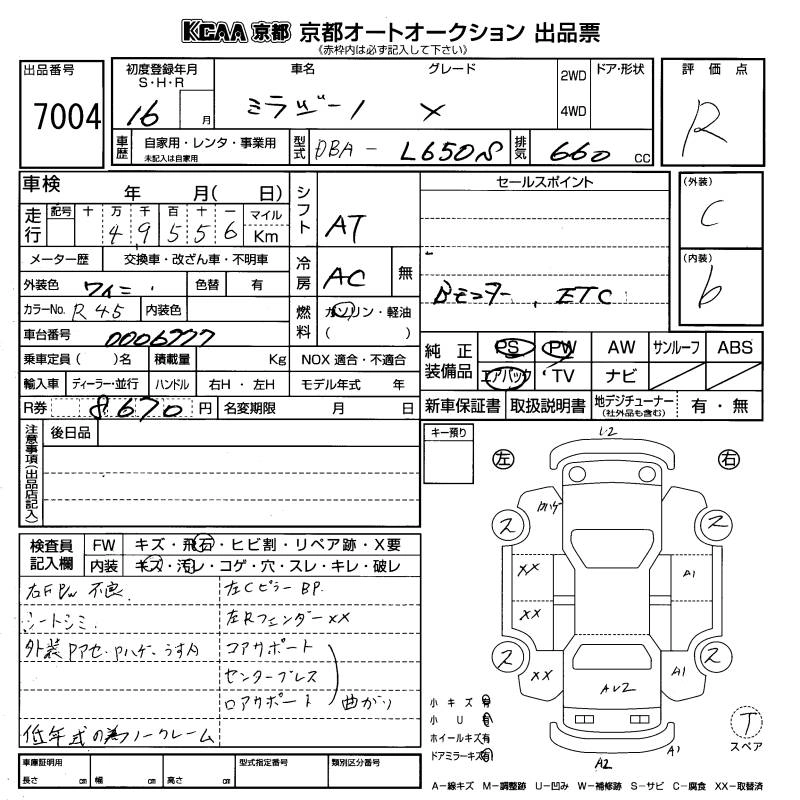 KCAA 京都 京都オートオークション 出品票
《赤枠内は必ず記入して下さい》
出品番号 7004
初度登録年月 S・H・R 16 月
車名 ミラジーノ グレード X
2WD 4WD ドア・形状
評価点 R
車歴 自家用・レンタ・事業用 未記入は自家用
型式 DBA - L650S 排気 660 CC
車検 年 月( 日)
シフト AT
セールスポイント
(外装) C
走行 記号 十 万 千 百 十 一 マイル Km
4 9 5 5 6
メーター歴 交換車・改ざん車・不明車
冷房 AC 無
Bモニター、ETC
(内装) b
外装色 ワイン 色替 有
カラーNo. R45 内装色
燃料 ガソリン・軽油 ( )
車台番号 0006777
乗車定員 ( )名 積載量 Kg NOX 適合・不適合
純正装備品 PS PW AW サンルーフ ABS
エアバック TV ナビ
輸入車 ディーラー・並行 ハンドル 右H・左H モデル年式 年
R券 8670 円 名変期限 月 日
新車保証書 取扱説明書 地デジチューナー (社外品も含む) 有・無
注意事項(出品店記入) 後日品
キー預り
左 右
U2
カハゲ
ス ス
XX A1
XX
ス ス
XX A1
AU2
A2 A1
検査員記入欄 FW キズ・飛石・ヒビ割・リペア跡・X要
内装 キズ・汚レ・コゲ・穴・スレ・キレ・破レ
右FPw 不良. 左Cピラー BP.
シートシミ. 左Rフェンダー XX
外装Pアセ・Pハゲ・うすA コアサポート
センターブレス
ロアサポート 曲がり
低年式の為ノークレーム
小キズ 有
小U 有
ホイールキズ 有
ドアミラーキズ 有
丁
スペア
車庫証明用 長さ cm 幅 cm 高さ cm 型式指定番号 類別区分番号
A－線キズ M－調整跡 U－凹み W－補修跡 S－サビ C－腐食 XX－取替済